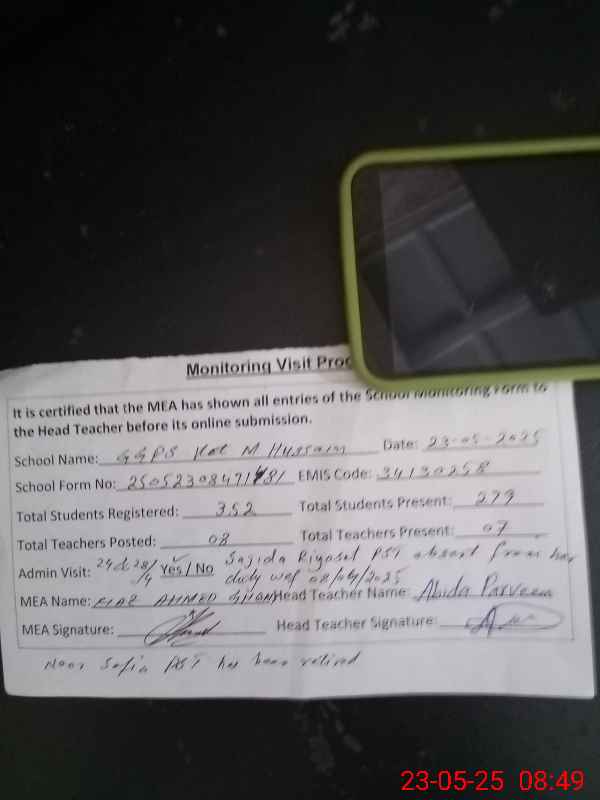 Monitoring Visit
It is certified that the MEA has shown all entries of the School Monitoring Form to
the Head Teacher before its online submission.
School Name: GGPS Kot M Hussain Date: 23-05-2025
School Form No: EMIS Code: 34130258
Total Students Registered: 352 Total Students Present: 279
Total Teachers Posted: 08 Total Teachers Present: 07
Admin Visit: Yes / No Sajida Riyasat PST absent from her
duty wef 08/04/2025
MEA Name: AHMED Head Teacher Name: Abida Parveen
MEA Signature: Head Teacher Signature:
Noor Safia PST has been retired
23-05-25 08:49